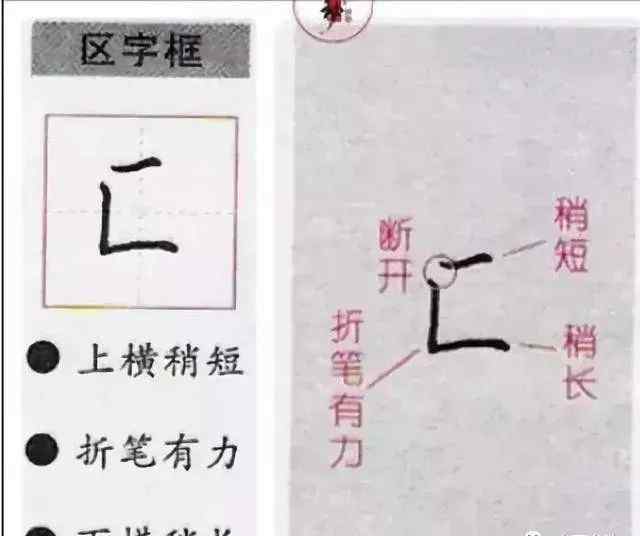 区字框
上横稍短
折笔有力
断开
稍短
折笔有力
稍长